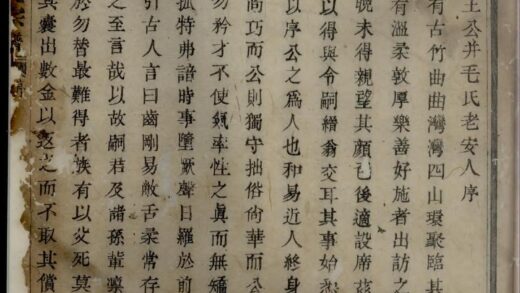 王公并毛氏老安人序
有古竹曲曲灣灣四山環聚臨其
有溫柔敦厚樂善好施者出訪之
晚未得親望其顏色後適設席
以得與令嗣縉翁交耳其事始
以序公之爲人也和易近人終身
尚巧而公則獨守拙俗尚華而公
勿矜才不使氣率性之眞而無矯
孤特弗諳時事墮厥聲日羅於前
引古人言曰齒剛易敝舌柔常存
之至言哉以故嗣君及諸孫輩凛
於勿替最難得者族有以父死莫
其囊出數金以返之而不取其償